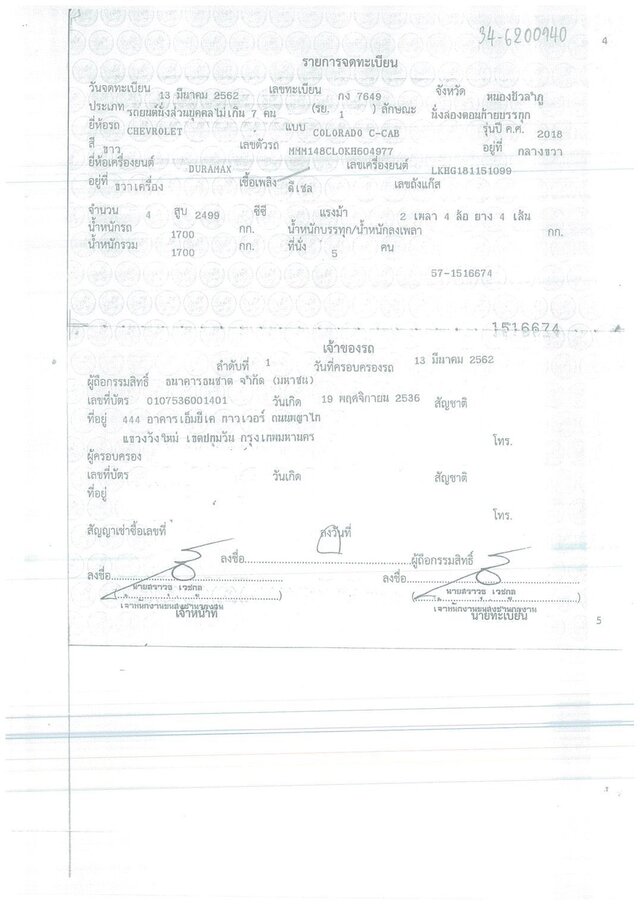 34-6200940
4
รายการจดทะเบียน
วันจดทะเบียน 13 มีนาคม 2562 เลขทะเบียน กง 7649 จังหวัด หนองบัวลำภู
ประเภท รถยนต์นั่งส่วนบุคคลไม่เกิน 7 คน (รย. 1 ) ลักษณะ นั่งสองตอนท้ายบรรทุก
ยี่ห้อรถ CHEVROLET แบบ COLORADO C-CAB รุ่นปี ค.ศ. 2018
สี ขาว เลขตัวรถ MMM148CLOKH604977 อยู่ที่ กลางขวา
ยี่ห้อเครื่องยนต์ DURAMAX เลขเครื่องยนต์ LKHG181151099
อยู่ที่ ขวาเครื่อง เชื้อเพลิง ดีเซล เลขถังแก๊ส
จำนวน 4 สูบ 2499 ซีซี แรงม้า 2 เพลา 4 ล้อ ยาง 4 เส้น
น้ำหนักรถ 1700 กก. น้ำหนักบรรทุก/น้ำหนักลงเพลา กก.
น้ำหนักรวม 1700 กก. ที่นั่ง 5 คน
57-1516674
1516674
เจ้าของรถ
ลำดับที่ 1 วันที่ครอบครองรถ 13 มีนาคม 2562
ผู้ถือกรรมสิทธิ์ ธนาคารธนชาต จำกัด (มหาชน)
เลขที่บัตร 0107536001401 วันเกิด 19 พฤศจิกายน 2536 สัญชาติ
ที่อยู่ 444 อาคารเอ็มบีเค ทาวเวอร์ ถนนพญาไท
แขวงวังใหม่ เขตปทุมวัน กรุงเทพมหานคร โทร.
ผู้ครอบครอง
เลขที่บัตร วันเกิด สัญชาติ
ที่อยู่
โทร.
สัญญาเช่าซื้อเลขที่ ลงวันที่
ลงชื่อ ผู้ถือกรรมสิทธิ์
ลงชื่อ ลงชื่อ
เจ้าหน้าที่ นายทะเบียน
5